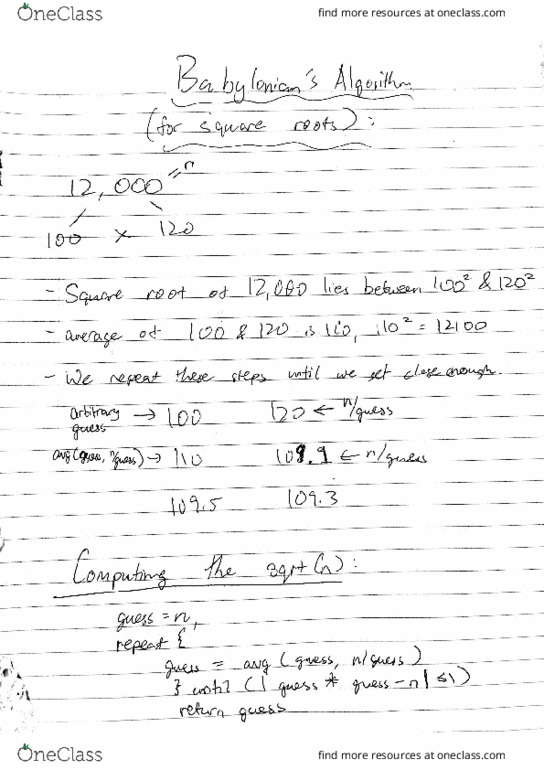 OneClass find more resources at oneclass.com
Babylonian's Algorithm
(for square roots):
12,000 = n
100 x 120
- Square root of 12,000 lies between 100² & 120²
- average of 100 & 120 is 110, 110² = 12100
- We repeat these steps until we get close enough.
arbitrary guess → 100 120 ← n/guess
avg(guess, n/guess) → 110 109.1 ← n/guess
109.5 109.3
Computing the sqrt(n):
guess = n,
repeat {
guess = avg (guess, n/guess)
} until (| guess * guess - n | ≤ 1)
return guess
OneClass find more resources at oneclass.com